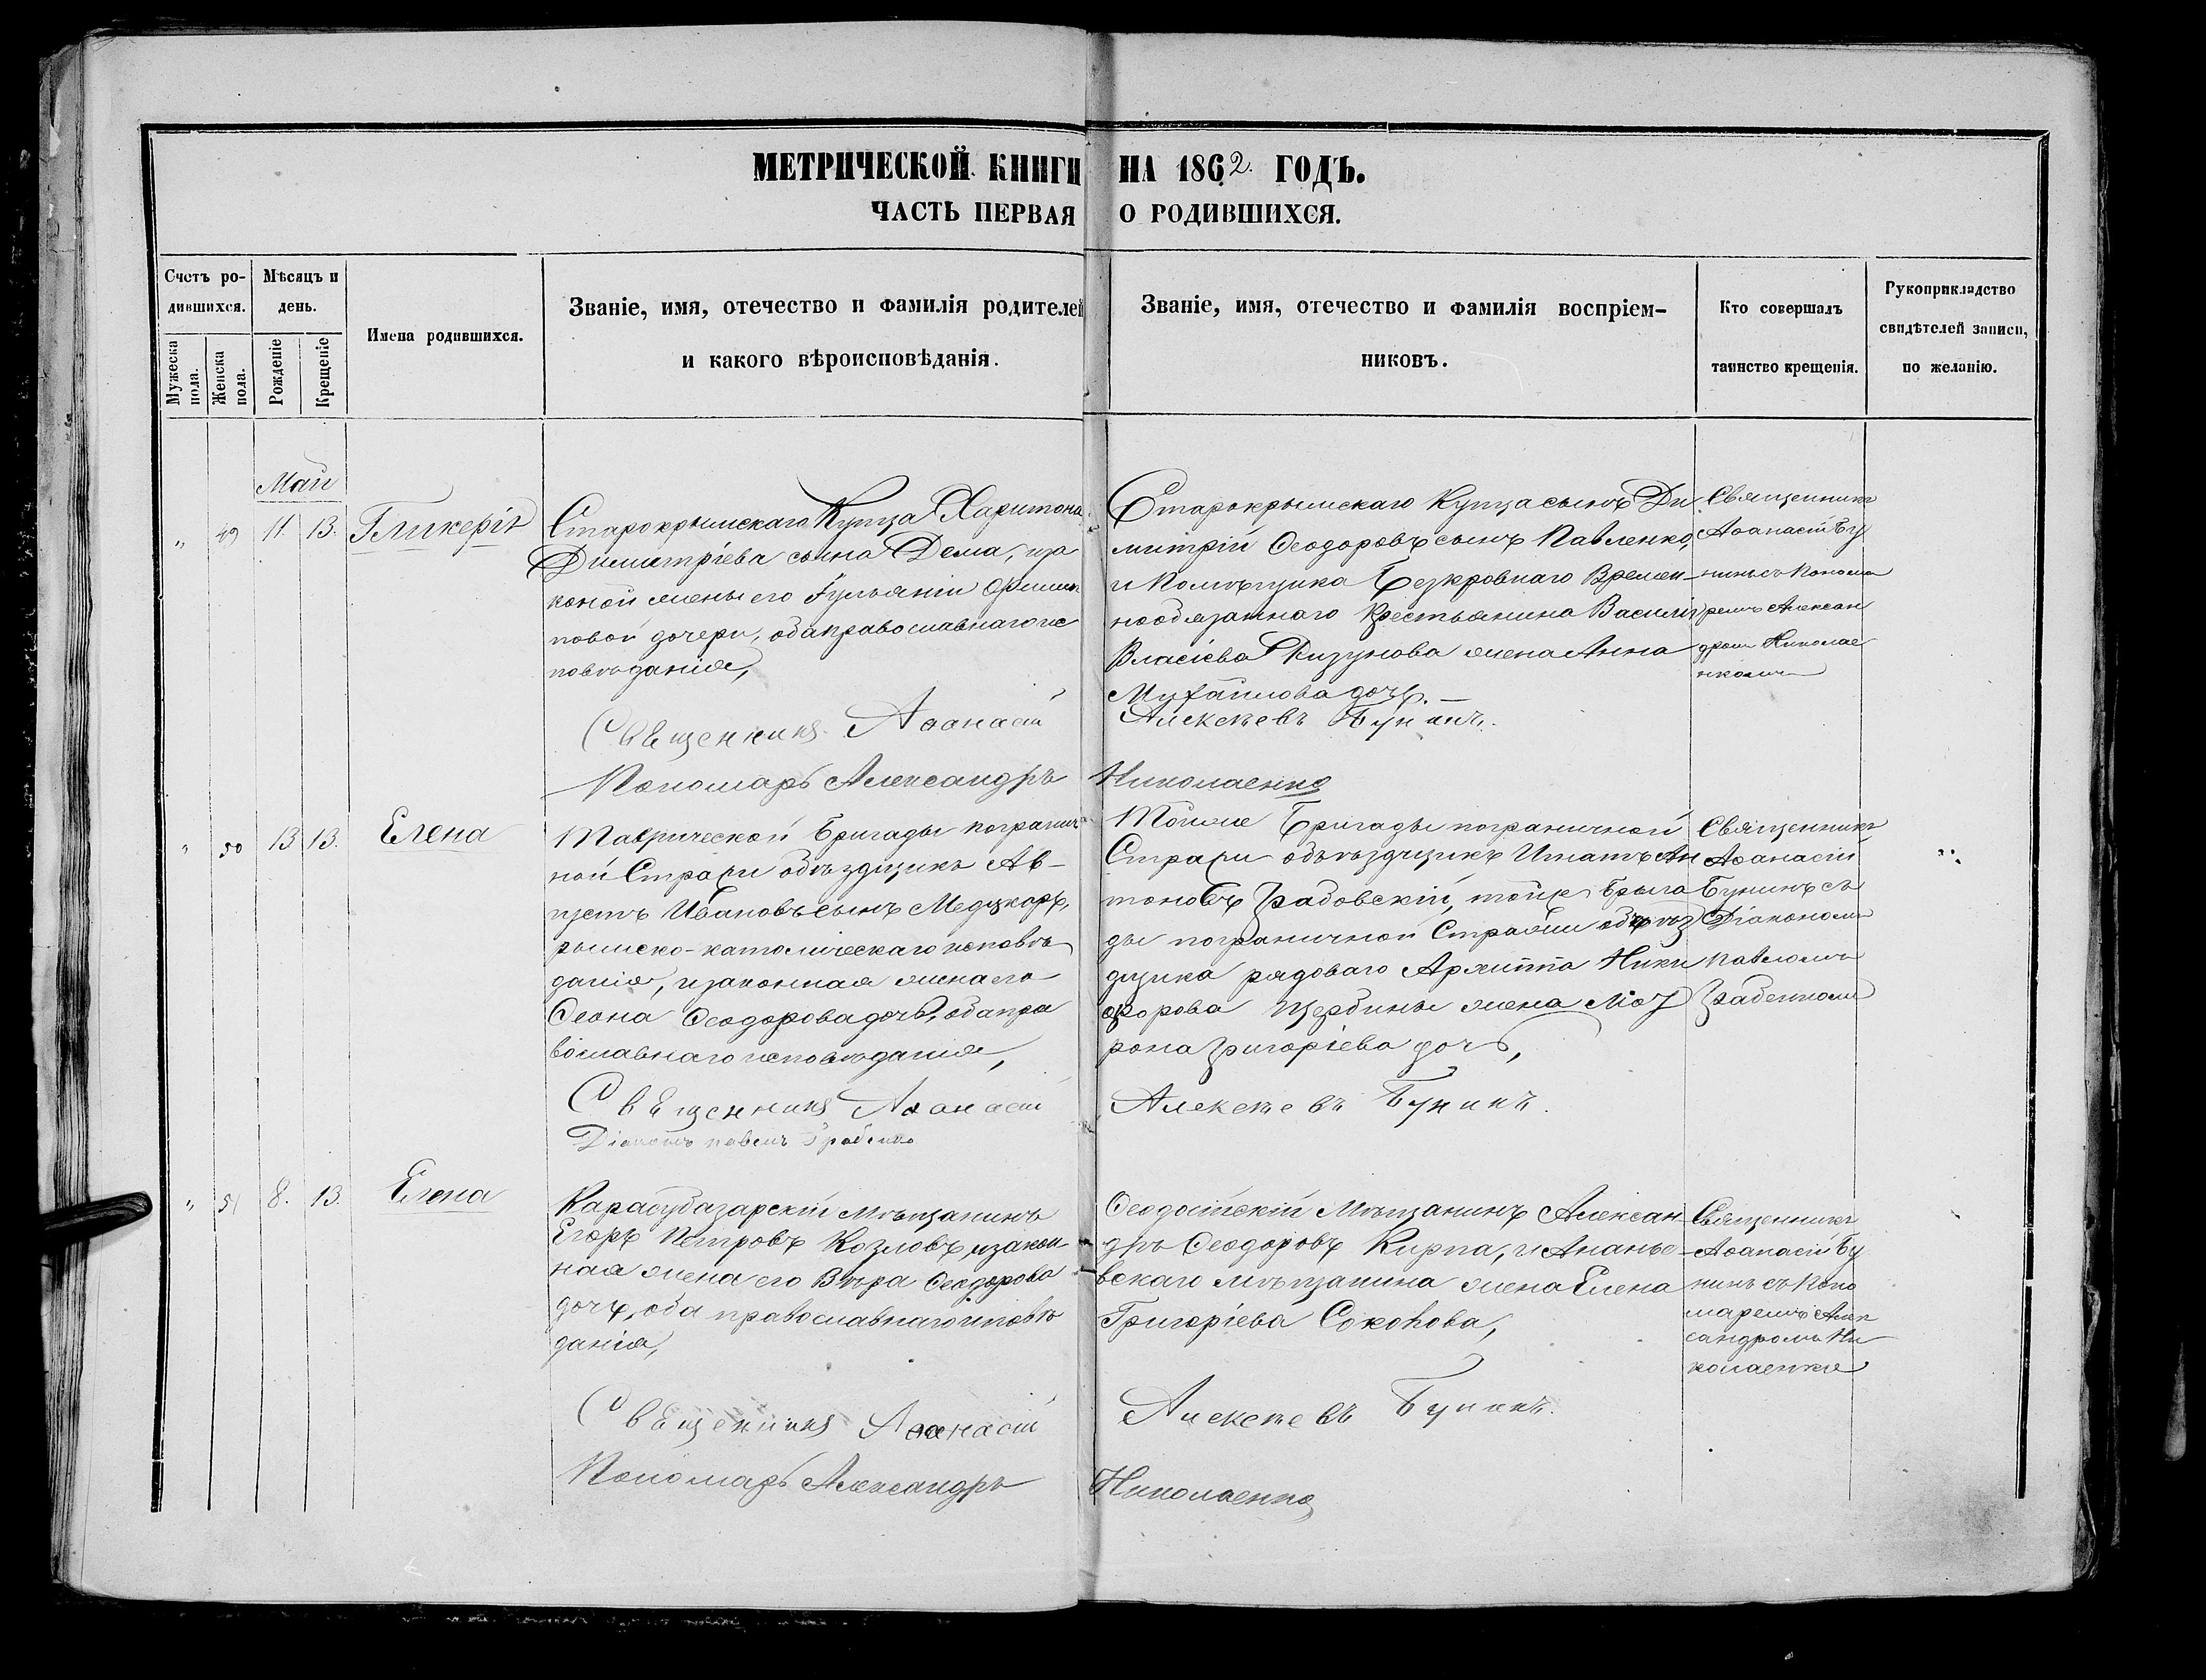 МЕТРИЧЕСКОЙ КНИГИ НА 1862 ГОДЪ.
ЧАСТЬ ПЕРВАЯ О РОДИВШИХСЯ.
Счетъ ро-
дившихся.
Мужеска пола.
Женска пола.
Мѣсяцъ и
день.
Рожденіе
Крещеніе
Имена родившихся.
Званіе, имя, отечество и фамилія родителей
и какого вѣроисповѣданія.
Званіе, имя, отечество и фамилія воспріем-
никовъ.
Кто совершалъ
таинство крещенія.
Рукоприкладство
свидѣтелей записи,
по желанію.
Май
„ 49 11. 13. Гликерія
Старокрымскаго Купца Харитона
Димитріева сына Дема,
коной жены его Іульяніи
повой дочери, оба православнаго ис
повѣданія,
Старокрымскаго Купца сынъ Ди
митрій Ѳеодоровъ сынъ Павленко,
и Помѣщика Безкровнаго Времен-
нообязаннаго Крестьянина Василія
Власіева Кизунова жена Анна
Михайлова дочь. —
Священникъ
Аѳанасій Бу
нинъ съ Понома
ремъ Алексан
дромъ Николае
нкомъ
Священникъ Аѳанасій Алексѣевъ Бунинъ.
Пономарь Александръ Николаенко
„ 50 13 13. Елена
Таврической Бригады погранич
ной Стражи объѣздчикъ Ав-
густъ Ивановъ сынъ
римско-католическаго исповѣ
данія, и законная жена его
Ѳеона Ѳеодорова дочь, оба пра
вославнаго исповѣданія,
Тойже Бригады пограничной
Стражи объѣздчикъ Игнатъ Ан
тоновъ Грабовскій, тойже Брига
ды пограничной Стражи объѣз
дчика рядоваго Архиппа Ники
форова Щербины жена Мот
рона Григоріева дочь,
Священникъ
Аѳанасій
Бунинъ съ
Діакономъ
Павломъ
Грабенкомъ
Священникъ Аѳанасій Алексѣевъ Бунинъ.
Діаконъ Павелъ Грабенко
„ 51 8. 13. Елена
Карасубазарскій мѣщанинъ
Егоръ Петровъ Козловъ, и закон
ная жена его Вѣра Ѳеодорова
дочь, оба православнаго исповѣ
данія,
Ѳеодосійскій Мѣщанинъ Алексан-
дръ Ѳеодоровъ Кирпа, и Ананье-
вскаго мѣщанина жена Елена
Григоріева Соколова,
Священникъ
Аѳанасій Бу
нинъ съ Поно
маремъ Алек
сандромъ Ни
колаенко
Священникъ Аѳанасій Алексѣевъ Бунинъ.
Пономарь Александръ Николаенко